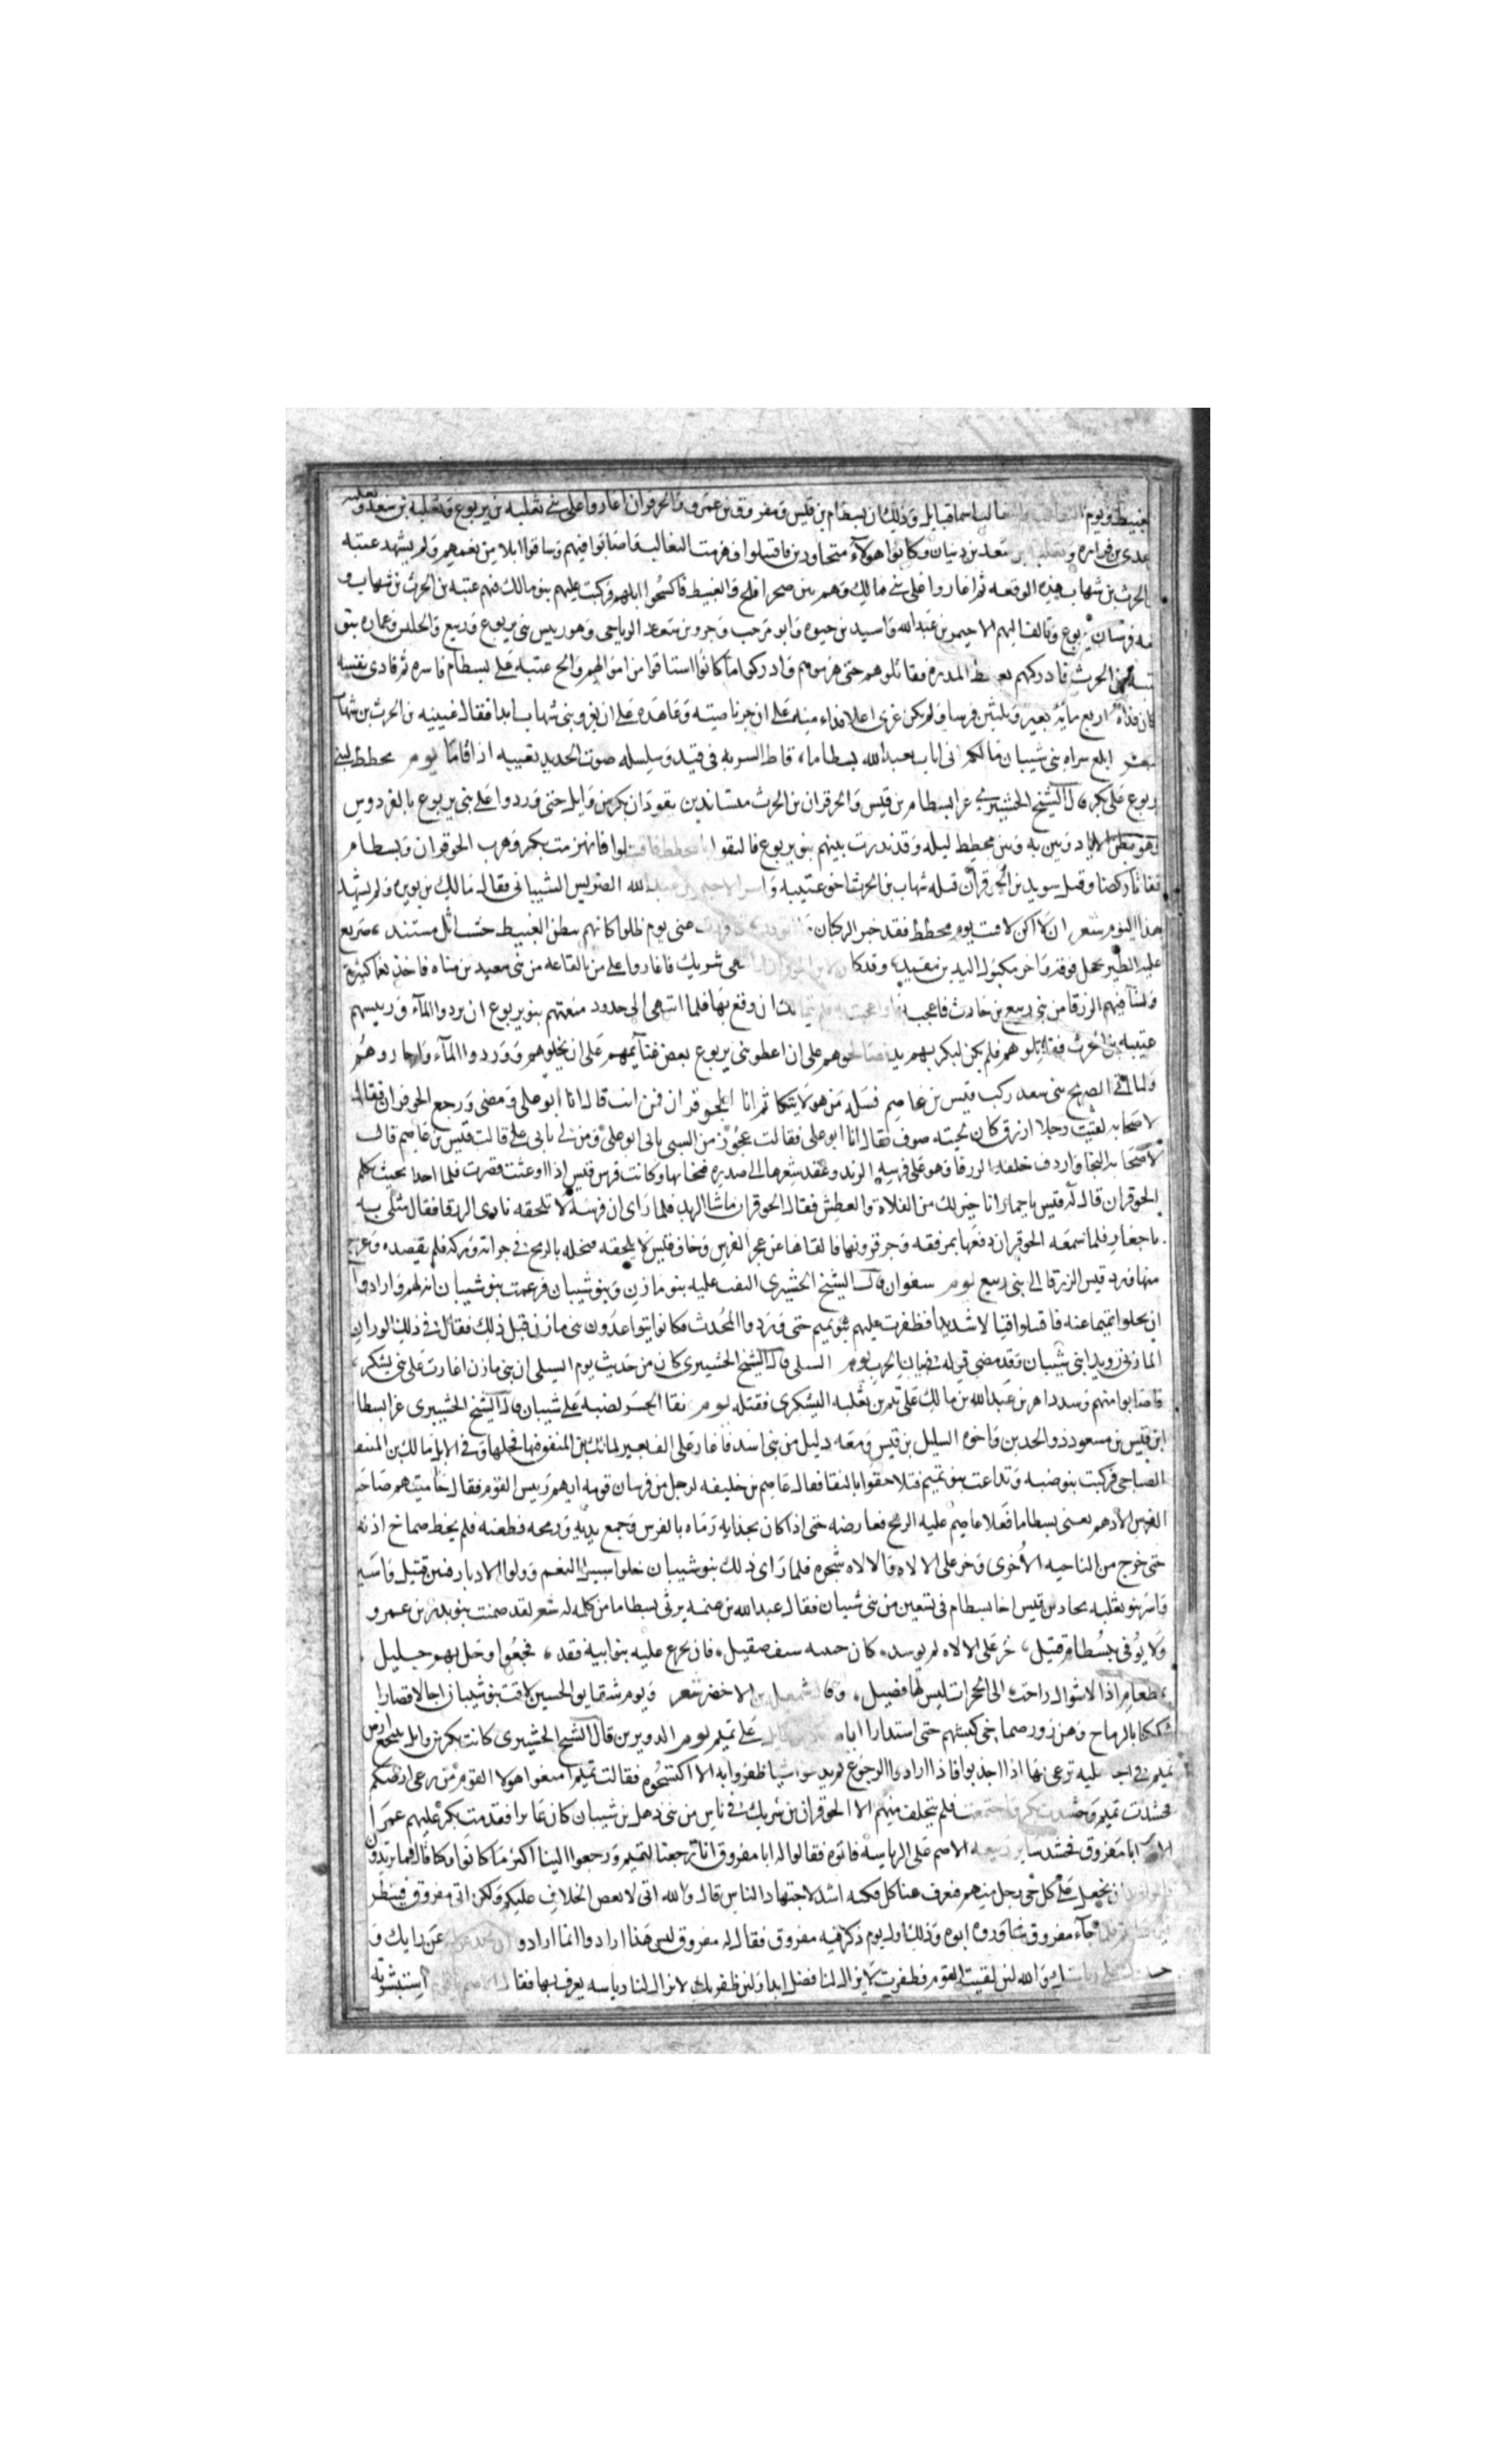 الغبيط ويوم الثعالب اسما قبايل وذلك ان بسطام بن قيس ومفروق بن عمرو والحوفزان اغاروا على بني ثعلبه بن يربوع وثعلبه بن سعد وثعلبه
عدى بن فزاره وثعلبه بن سعد بن ذبيان وكانوا هولاء متجاورين فاقتتلوا فهزمت الثعالبه فاصابوا فيهم وساقوا ابلا من نعمهم ولم يشهد عتيبه
الحرث بن شهاب هذه الوقعه ثم اغاروا على بني مالك وهم بين صحرا فلج والغبيط فاكتسحوا ابلهم فركبت عليهم بنو مالك فيهم عتيبه بن الحرث بن شهاب و
فرسان يربوع وتالف اليهم الاحيمر بن عبدالله واسيد بن حيوه وابو مرحب وجرو بن سعد الرياحي وهو رييس بني يربوع وربيع والحليس وعماره بنو
عتيبه بن الحرث فادركهم بغبيط المدره فقاتلوهم حتى هزموهم وادركوا ما كانوا استاقوا من اموالهم والح عتيبه على بسطام فاسره ثم فادى نفسه
كان فداه اربع مايه بعير وثلثين فرسا ولم يكن عربي اعلا فداء منه على ان جز ناصيته وعاهده على ان لا يغزو بني شهاب ابدا فقال عتيبه بن الحرث بن شهاب
شعر ابلغ سراه بني شيبان مالكه اني ابات بعبد الله بسطاما، قاظ السريه في قيد وسلسله صوت الحديد يغنيه اذا قاما يوم مخطط لبني
يربوع على بكر قال الشيخ الخشيبري غزا بسطام بن قيس والحوفزان بن الحرث متساندين يقودان بكر بن وايل حتى وردوا على بني يربوع بالفردوس
وهو بطن الاياد وبين به وبين مخطط ليله وقد نذرت بينهم بنو يربوع فالتقوا بالمخطط فاقتتلوا فانهزمت بكر وهرب الحوفزان وبسطام
ففاتا ركضا وقتل سويد بن الحوفزان قتله شهاب بن الحرث اخو عتيبه واسر الاحيمر بن عبدالله الضريس الشيباني فقال مالك بن نويره ولم يشهد
هذا اليوم شعر ان لا اكن لاقيت يوم مخطط فقد خبر الركبان ما اتودد حتى يوم ظلوا كانهم ببطن الغبيط خشب اثل مسند، صريع
عليه الطير تحجل فوقه واخر مكبول اليدين مقيد، وقد كان الحوفزان بن شريك فاغاروا على من بالقاعه من بني سعد بن مناه فاخذ نعما كثيره
ونسا فيهم الزرقا من بني ربيع بن حارث فاعجب بها واعجبت به فلم يتمالك ان وقع بها فلما انتهى الى جدود منعتهم بنو يربوع ان يردوا الماء ورييسهم
عتيبه بن الحرث فقاتلوهم فلم يكن لبكر بهم يد فصالحوهم على ان اعطوا بني يربوع بعض غنايمهم على ان يخلوهم ووردوا الماء واجازوهم
ولما اتى الصريخ بني سعد ركب قيس بن عاصم فسله من هو لا يتكاثم انا الحوفزان فمن انت قال انا ابو علي ومضى ورجع الحوفزان فقال
لاصحابه لقيت رجلا ازرق كان لحيته صوف فقال انا ابو علي فقالت عجوز من السبى بابي ابو علي ومن لي بابي علي قالت قيس بن عاصم قال
لاصحابه النجا واردف خلفه الزرقا وهو على فرسه الزبد وعقد شعرها الى صدره فنجا بها وكانت فرس قيس اذا اوعثت قصرت فلما احدا بحيث يكلم
الحوفزان قال له قيس يا حمار انا خير لك من الفلاه والعطش فقال الحوفزان ما شا الزبد فلما راى ان فرسه لا تلحقه نادى الزرقا فقال مثلي به
يا جعار فلما سمعه الحوفزان دفعها بمرفقه وجز قرونها فالقاها عن عجز الفرس وخاف قيس لا يلحقه فنجله بالرمح في خرابة وركه فلم يقصده وعرج
منها فرد قيس الزرقا الى بني ربيع يوم سفوان قال الشيخ الخشيبري التقت عليه بنو مازن وبنو شيبان فزعمت بنو شيبان انه لهم وارادوا
ان يحلوا تميما عنه فاقتتلوا قتالا شديدا فظفرت عليهم بنو تميم حتى وردوا المحدث فكانوا يتواعدون بني مازن قبل ذلك فقال في ذلك الوراد
المازني رويدا بني شيبان وقد مضى قوله في بيان الحرب يوم السلي قال الشيخ الخشيبري كان من حديث يوم السلي ان بني مازن اغارت على بني يشكر،
فاصابوا منهم وسدد اهر بن عبدالله بن مالك على تيم بن ثعلبه اليشكري فقتله يوم نقا الحسن لضبه على شيبان قال الشيخ الخشيبري غزا بسطام
ابن قيس بن مسعود ذو الجدين واخوه السليل بن قيس ومعه دليل من بني اسد فاغار على الف بعير لمالك بن المنتفق فيها فحلها وفي الابل مالك بن المنتفق
الضباحي فركبت بنو ضبه وتداعت بنو تميم فتلاحقوا بالنقا فقال عاصم بن خليفه لرجل من فرسان قومه ايهم رييس القوم فقال حاميتهم صاحب
الفرس الادهم يعني بسطاما فعلا عاصم عليه الرمح فعارضه حتى اذا كان بحذايه رماه بالفرس وجمع يديه ورمحه فطعنه فلم يخط صماخ اذنه
حتى خرج من الناحيه الاخرى وخر على الالاه والالاه شجره فلما راى ذلك بنو شيبان خلوا سبيل النعم وولوا الادبار فمن قتيل واسير
واسر بنو ثعلبه بجاد بن قيس اخا بسطام في تسعين من بني شيبان فقال عبدالله بن عنمه يرثي بسطاما من كلمه له شعر لقد ضمنت بنو بدر بن عمرو
ولا يوفي ببسطام قتيل، خر على الالاه لم يوسد، كان جبينه سيف صقيل، فان يجزع عليه بنو ابيه فقد، فجعوا وحل بهم جليل
بمطعام اذا الاشوال راحت، الى الحجرات ليس لها فصيل، وقال شمعل بن الاخضر شعر ويوم شقايق الحسنين لاقت بنو شيبان اجالا قصارا
شككنا بالرماح وهن زور صماخي كبشهم حتى استدارا على تميم يوم الدويرين قال الشيخ الخشيبري كانت بكر بن وايل تنتجع ارض
تميم في الجاهليه ترعى بها اذا اجدبوا فاذا ارادوا الرجوع لم يدعوا شيا ظفروا به الا اكتسحوه فقالت تميم امنعوا هولا القوم من رعي ارضكم
فحشدت تميم وحشدت بكر واجتمعت فلم يتخلف منهم الا الحوفزان بن شريك في ناس من بني ذهل بن شيبان كان غازيا فقدمت بكر عليهم عمرا
الاصم ابا مفروق فحسد ساير ربيعه الاصم على الرياسه فاتوه فقالوا له ابا مفروق انا زحفنا لتميم ورجعوا الينا اكثر ما كانوا وكنا قال فما تريدون
قالوا نريد ان نجعل على كل حي رجل منهم فنعرف عنا كل فكنه اشد لاجتهاد الناس قال والله اني لابغض الخلاف عليكم ولكن اتي مفروق فينظر
فجاء مفروق فشاوروه ابوه وذلك اول يوم ذكر فيه مفروق فقال له مفروق ليس هذا ارادوا انما ارادوا عن رايك و
والله لئن لقيت القوم فظفرت لا يزال لنا فضل ابدا ولئن ظفر بك لا يزال لنا رياسه يعرف بها فقال استشرته